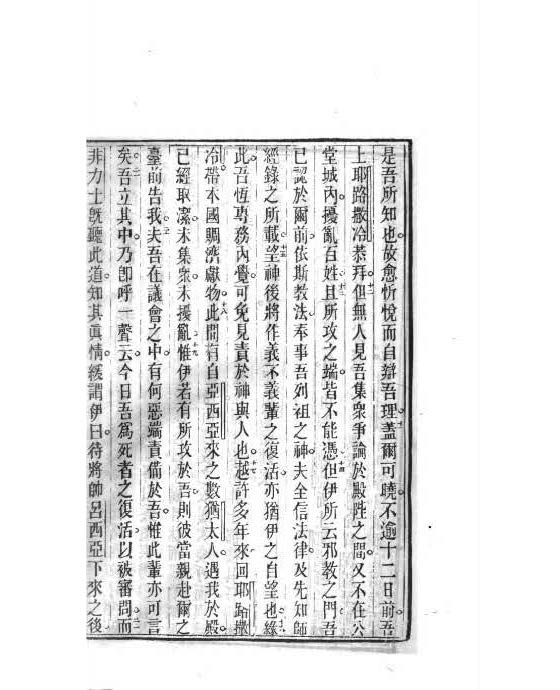 是吾所知也故愈忻悅而自辯吾理蓋爾可曉不逾十二日前吾
上耶路撒冷恭拜十二但無人見吾集衆爭論於殿陛之間又不在公
堂城內擾亂百姓十三且所攻之端皆不能憑十四但伊所云邪教之門吾
已認於爾前依斯教法奉事吾列祖之神夫全信法律及先知師
經錄之所載十五望神後將作義不義輩之復活亦猶伊之自望也十六緣
此吾恆專務內覺可免見責於神與人也十七越許多年來回耶路撒
冷帶本國賙濟獻物十八此間有自亞西亞來之數猶太人遇我於殿
已經取潔未集衆未擾亂十九惟伊若有所攻於吾則彼當親赴爾之
臺前告我二十夫吾在議會之中有何惡端責備於吾惟此輩亦可言
矣二一吾立其中乃卽呼一聲云今日吾爲死者之復活以被審問而
非力士旣聽此道知其眞情緩謂伊曰待將帥呂西亞下來之後